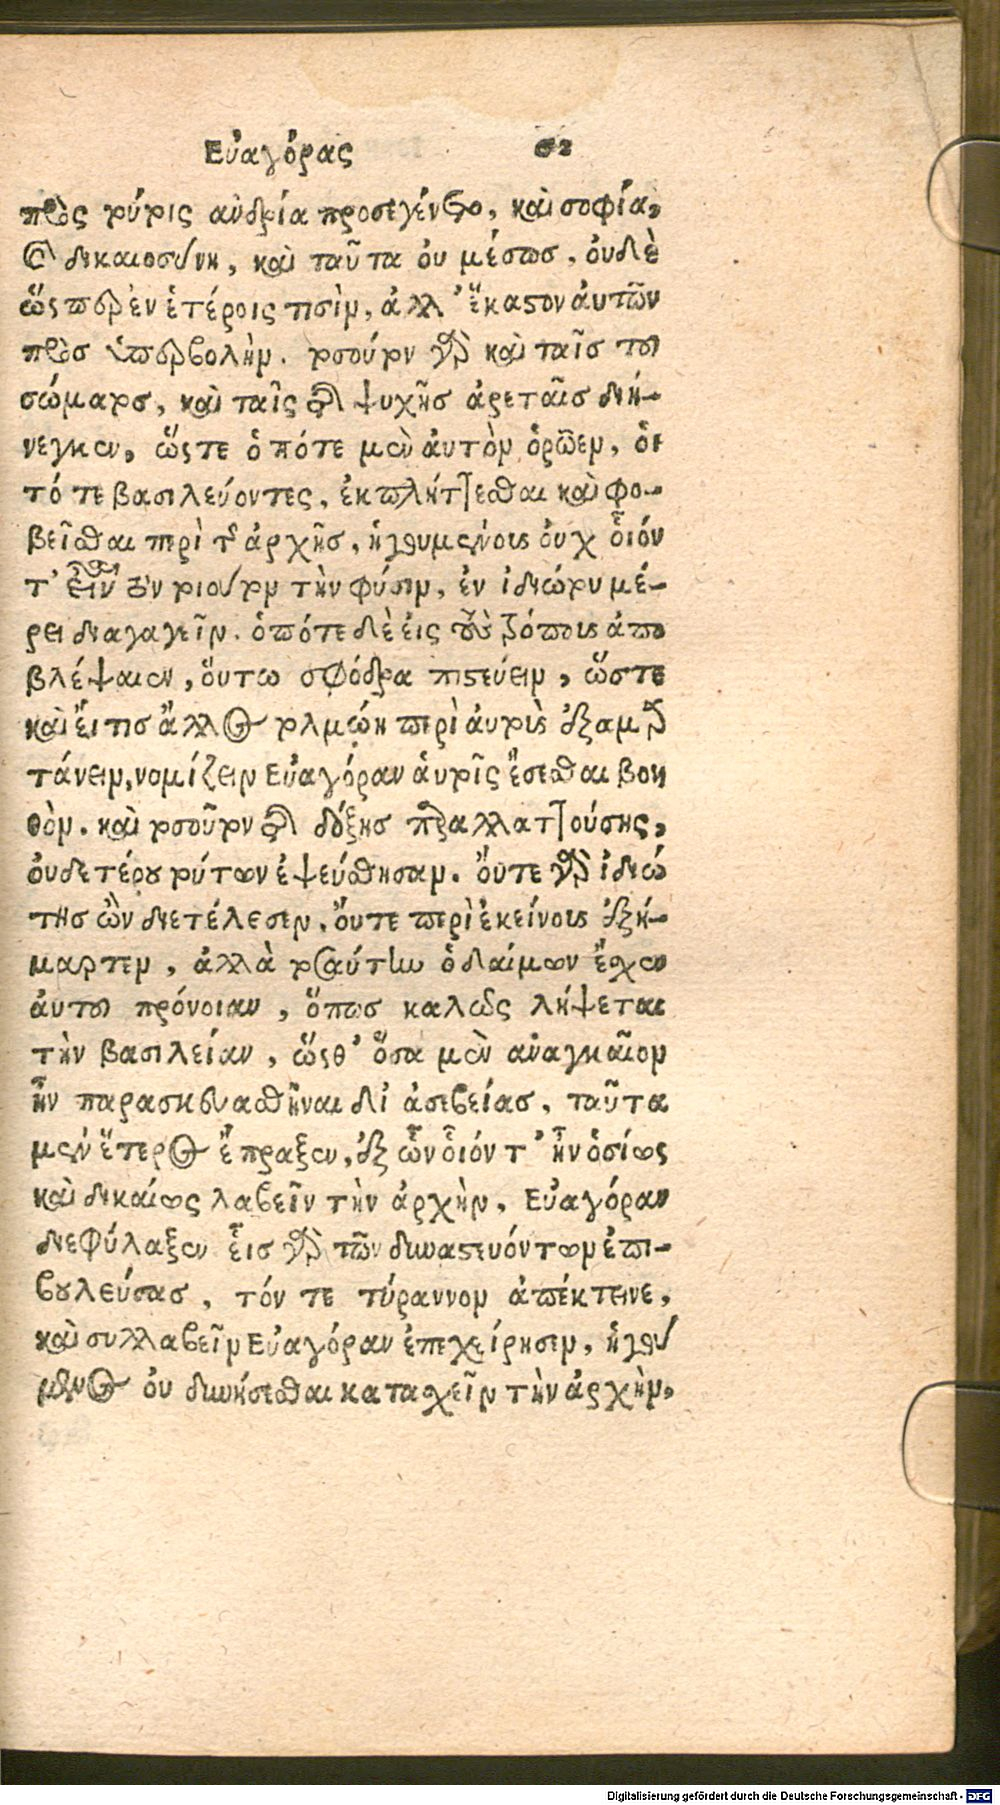 Εὐαγόρας 62
πρὸς τούτοις ἀνδρία προσεγένετο, καὶ σοφία,
καὶ δικαιοσύνη, καὶ ταῦτα ὀυ μέσως, ὀυδὲ
ὥςπερ ἐν ἑτέροις τισὶν, ἀλλ' ἕκαστον ἀυτῶν
πρὸς ὑπερβολὴν. τοσούτον γὰρ καὶ ταῖς του
σώματος, καὶ ταῖς τῆς ψυχῆς ἀρεταῖς διή-
νεγκεν, ὥςτε ὁπότε μὲν ἀυτὸν ὁρῷεν, ὁι
τό τε βασιλεύοντες, ἐκπλήττεσθαι καὶ φο-
βεῖσθαι περὶ τῆς ἀρχῆς, ἡγουμένους ὀυχ ὁῖόν
τ' εἶναι τὸν τοιοῦτον τὴν φύσιν, ἐν ἰδιώτου μέ-
ρει διαγαγεῖν. ὁπότε δὲ ἐις τοὺς τρόπους ἀπο
βλέψαιεν, ὅυτω σφόδρα πιστεύειν, ὥστε
καὶ ἔι τις ἄλλος τολμώη περὶ ἀυτοὺς ἐξαμαρ
τάνειν, νομίζειν Εὐαγόραν ἁυτοῖς ἔσεσθαι βοη
θὸν. καὶ τοσοῦτον τῆς δόξης παραλλαττούσης,
ὀυδετέρου τούτων ἐψεύσθησαν. ὄυτε γὰρ ἰδιώ
της ὢν διετέλεσεν, ὄυτε περὶ ἐκείνους ἐξή-
μαρτεν, ἀλλὰ τοσαύτην ὁ δαίμων ἔσχεν
ἀυτου πρόνοιαν, ὅπως καλῶς λήψεται
τὴν βασιλείαν, ὥςθ' ὅσα μὲν ἀναγκαῖον
ἦν παρασκευασθῆναι δι' ἀσεβείας, ταῦτα
μὲν ἕτερος ἔπραξεν, ἐξ ὧν ὁῖόν τ' ἦν ὁσίως
καὶ δικαίως λαβεῖν τὴν ἀρχὴν, Εὐαγόραν
διεφύλαξεν εἷις γὰρ τῶν δυναστευόντων ἐπι-
βουλεύσας, τόν τε τύραννον ἀπέκτεινε,
καὶ συλλαβεῖν Εὐαγόραν ἐπεχείρησεν, ἡγού
μενος ὀυ δυνήσεσθαι κατασχεῖν τὴν ἀρχὴν,
Digitalisierung gefördert durch die Deutsche Forschungsgemeinschaft - DFG